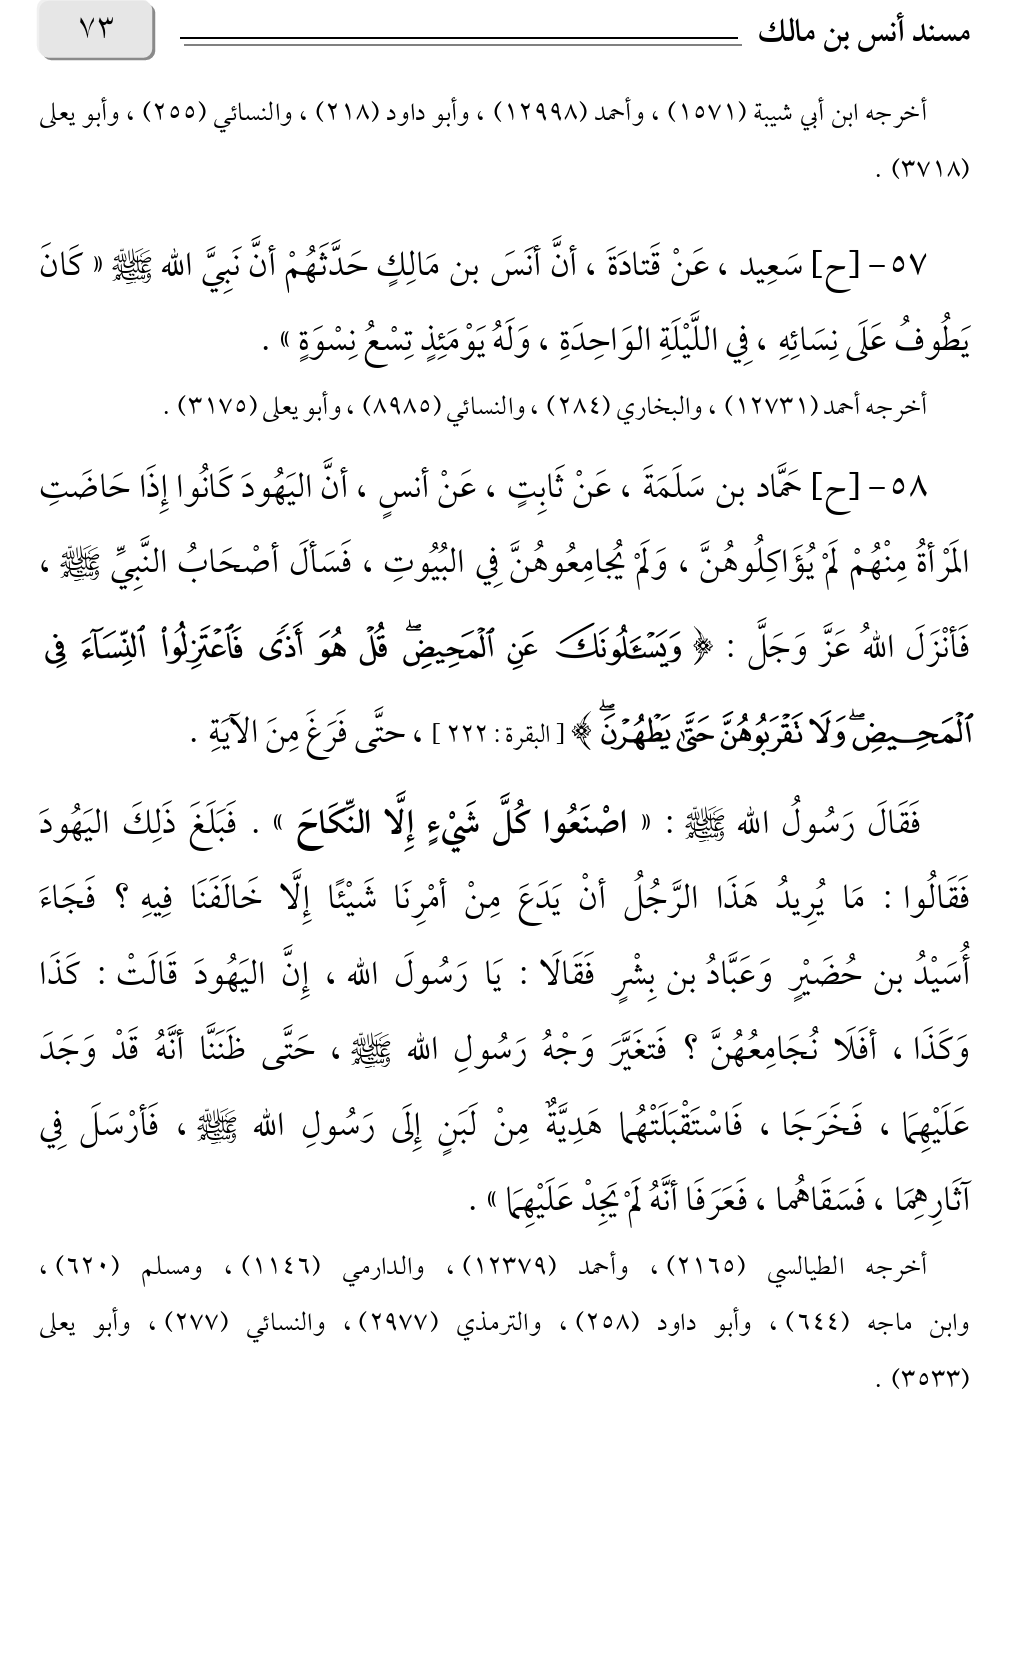 مسند أنس بن مالك ٧٣
أخرجه ابن أبي شيبة (١٥٧١) ، وأحمد (١٢٩٩٨) ، وأبو داود (٢١٨) ، والنسائي (٢٥٥) ، وأبو يعلى
(٣٧١٨) .
٥٧- [ح] سَعِيد ، عَنْ قَتادَةَ ، أنَّ أنَسَ بن مَالِكٍ حَدَّثَهُمْ أنَّ نَبِيَّ الله ﷺ « كَانَ
يَطُوفُ عَلَى نِسَائِهِ ، فِي اللَّيْلَةِ الوَاحِدَةِ ، وَلَهُ يَوْمَئِذٍ تِسْعُ نِسْوَةٍ » .
أخرجه أحمد (١٢٧٣١) ، والبخاري (٢٨٤) ، والنسائي (٨٩٨٥) ، وأبو يعلى (٣١٧٥) .
٥٨- [ح] حَمَّاد بن سَلَمَةَ ، عَنْ ثَابِتٍ ، عَنْ أنسٍ ، أنَّ اليَهُودَ كَانُوا إِذَا حَاضَتِ
المَرْأةُ مِنْهُمْ لَمْ يُؤَاكِلُوهُنَّ ، وَلَمْ يُجامِعُوهُنَّ فِي البُيُوتِ ، فَسَألَ أصْحَابُ النَّبِيِّ ﷺ ،
فَأنْزَلَ اللهُ عَزَّ وَجَلَّ : ﴿ وَيَسْـَٔلُونَكَ عَنِ ٱلْمَحِيضِۖ قُلْ هُوَ أَذًى فَٱعْتَزِلُوا۟ ٱلنِّسَآءَ فِى
ٱلْمَحِيضِۖ وَلَا تَقْرَبُوهُنَّ حَتَّىٰ يَطْهُرْنَۖ ﴾ [ البقرة : ٢٢٢ ] ، حتَّى فَرَغَ مِنَ الآيَةِ .
فَقَالَ رَسُولُ الله ﷺ : « اصْنَعُوا كُلَّ شَيْءٍ إِلَّا النِّكَاحَ » . فَبَلَغَ ذَلِكَ اليَهُودَ
فَقَالُوا : مَا يُرِيدُ هَذَا الرَّجُلُ أنْ يَدَعَ مِنْ أمْرِنَا شَيْئًا إِلَّا خَالَفَنَا فِيهِ ؟ فَجَاءَ
أُسَيْدُ بن حُضَيْرٍ وَعَبَّادُ بن بِشْرٍ فَقَالَا : يَا رَسُولَ الله ، إِنَّ اليَهُودَ قَالَتْ : كَذَا
وَكَذَا ، أفَلَا نُجَامِعُهُنَّ ؟ فَتغَيَّرَ وَجْهُ رَسُولِ الله ﷺ ، حَتَّى ظَنَنَّا أنَّهُ قَدْ وَجَدَ
عَلَيْهِمَا ، فَخَرَجَا ، فَاسْتَقْبَلَتْهُما هَدِيَّةٌ مِنْ لَبَنٍ إِلَى رَسُولِ الله ﷺ ، فَأرْسَلَ فِي
آثَارِهِمَا ، فَسَقَاهُما ، فَعَرَفَا أنَّهُ لَمْ يَجِدْ عَلَيْهِمَا » .
أخرجه الطيالسي (٢١٦٥) ، وأحمد (١٢٣٧٩) ، والدارمي (١١٤٦) ، ومسلم (٦٢٠) ،
وابن ماجه (٦٤٤) ، وأبو داود (٢٥٨) ، والترمذي (٢٩٧٧) ، والنسائي (٢٧٧) ، وأبو يعلى
(٣٥٣٣) .